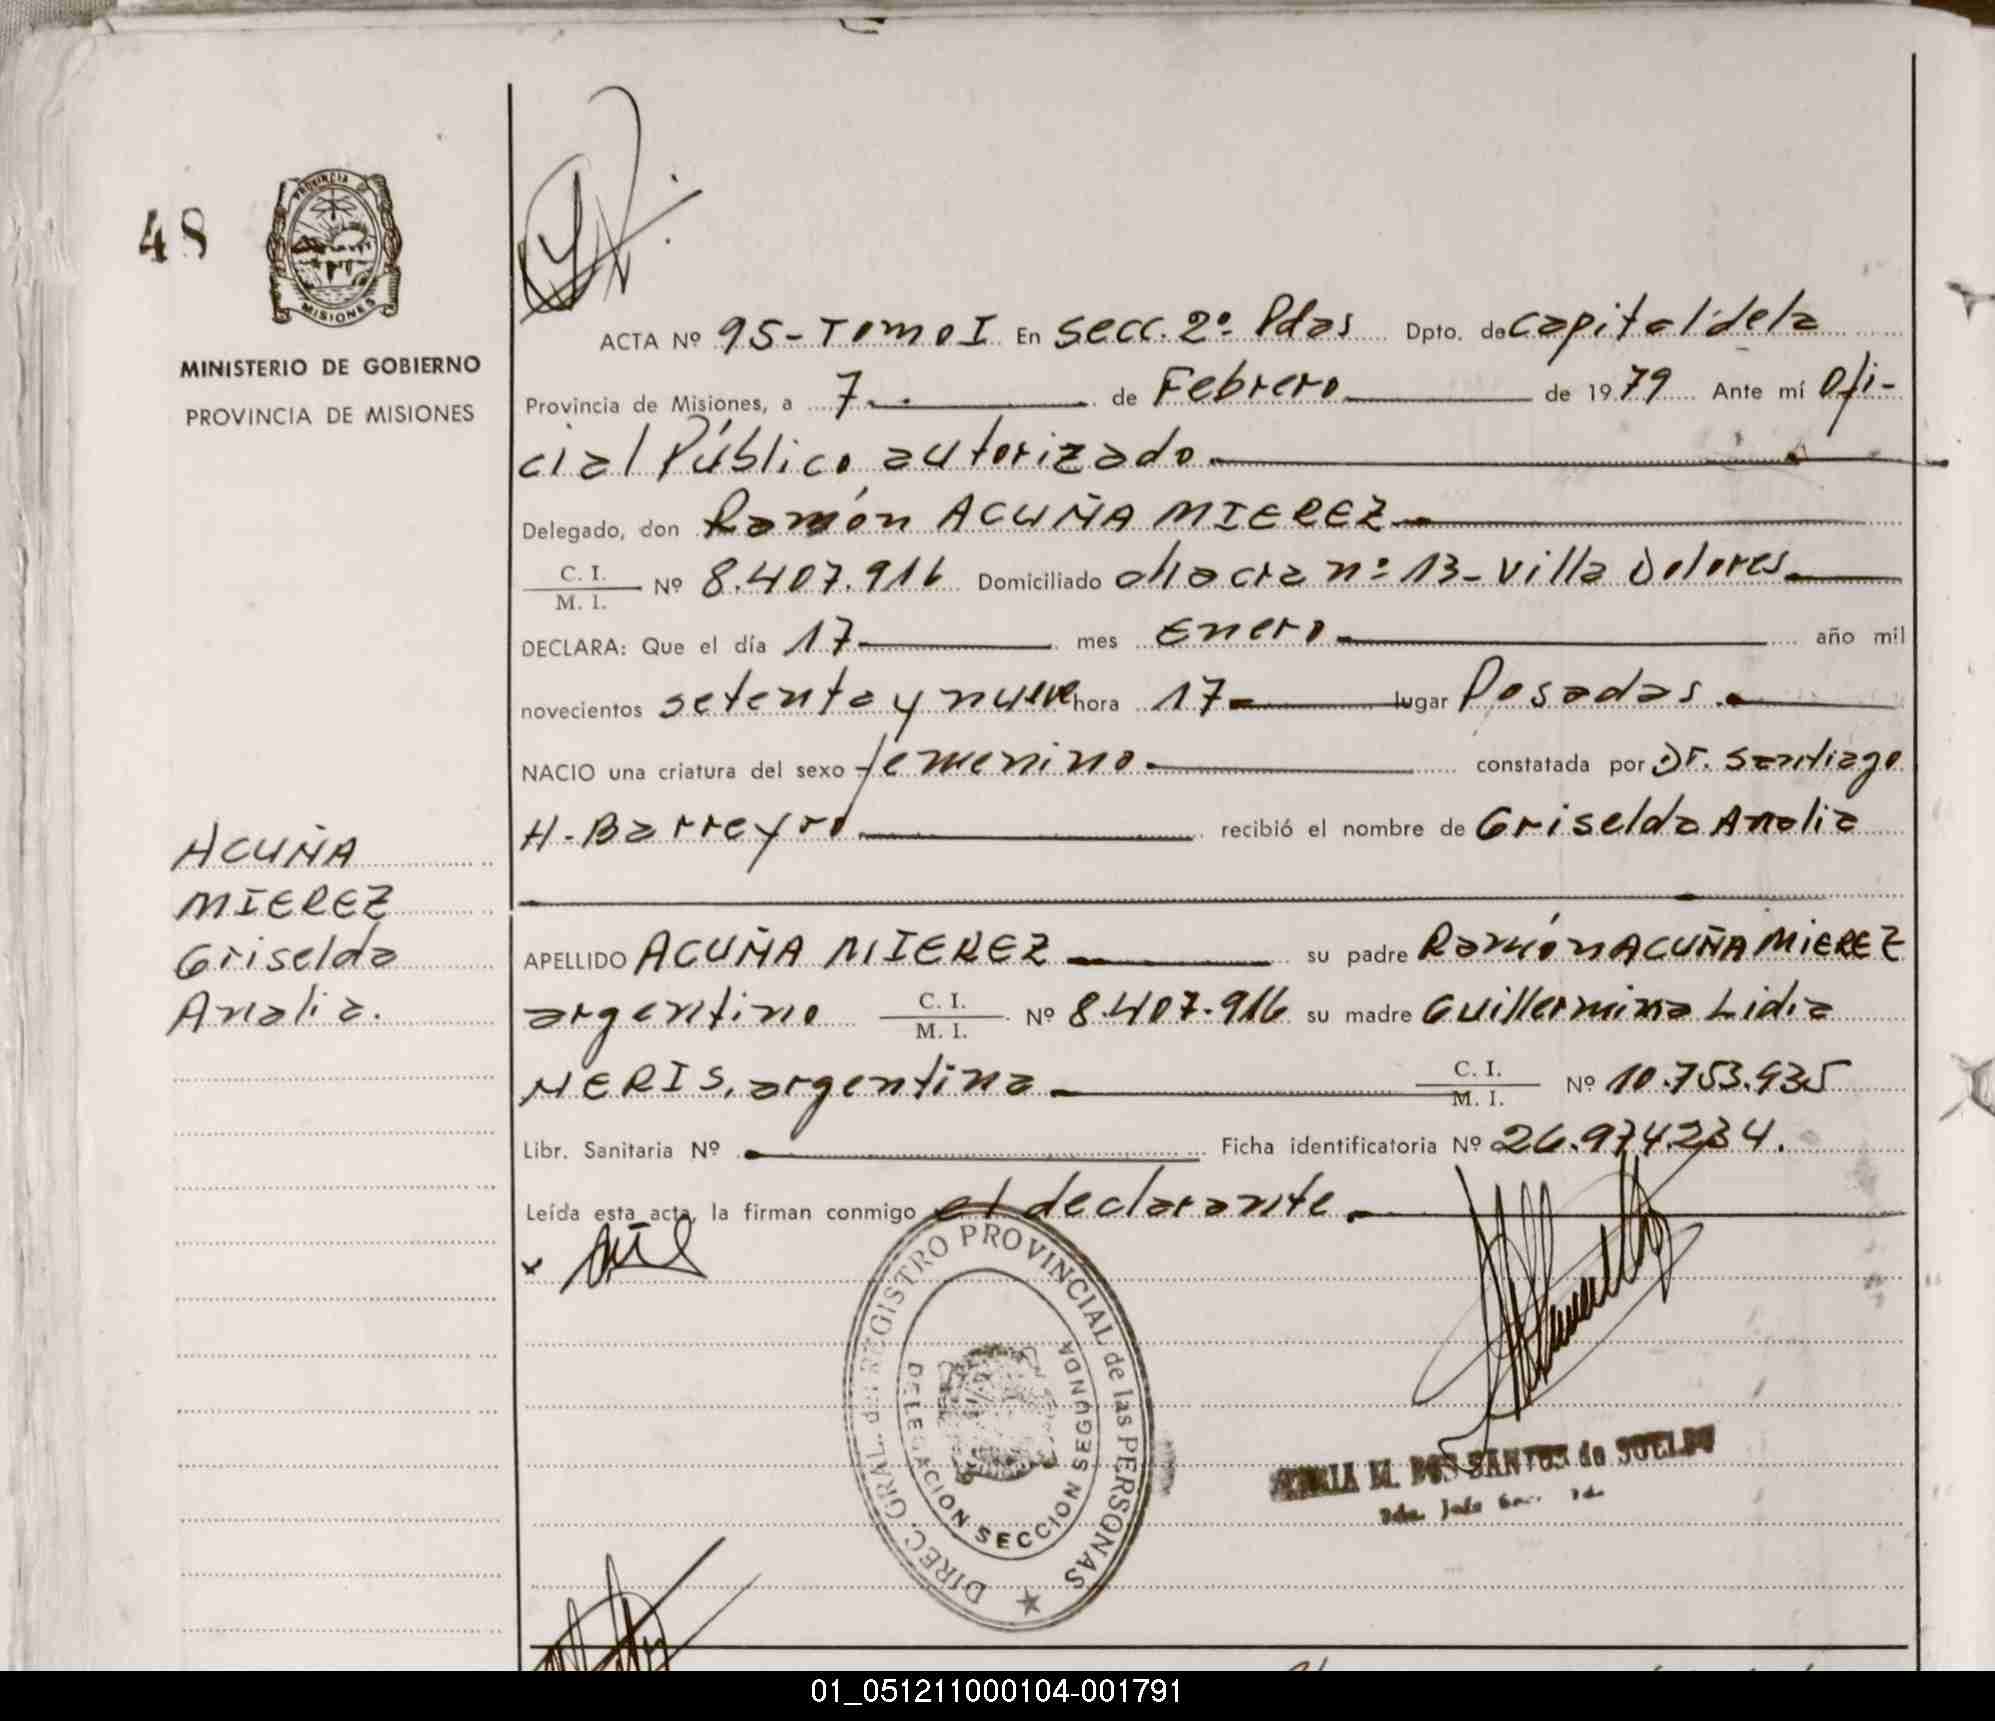 48
PROVINCIA DE
MISIONES
MINISTERIO DE GOBIERNO
PROVINCIA DE MISIONES
ACUÑA
MIEREZ
Griselda
Analia.
ACTA Nº 95-Tomo I En Secc. 2º. Pdas Dpto. de Capital de la
Provincia de Misiones, a 7 de Febrero de 1979 Ante mí Ofi-
cial Público autorizado
Delegado, don Ramón ACUÑA MIEREZ
C. I.
M. I. Nº 8.407.916 Domiciliado chacra nº 13- Villa Dolores
DECLARA: Que el día 17 mes Enero año mil
novecientos setenta y nueve hora 17 lugar Posadas
NACIO una criatura del sexo femenino constatada por Dr. Santiago
H. Barreyro recibió el nombre de Griselda Analia
APELLIDO ACUÑA MIEREZ su padre Ramón ACUÑA MIEREZ
argentino C. I.
M. I. Nº 8.407.916 su madre Guillermina Lidia
NERIS, argentina C. I.
M. I. Nº 10.753.935
Libr. Sanitaria Nº Ficha identificatoria Nº 26.974.234.
Leída esta acta, la firman conmigo el declarante
DIREC. GRAL. del REGISTRO PROVINCIAL de las PERSONAS
DELEGACION SECCION SEGUNDA
M. DOS SANTOS de
01_051211000104-001791